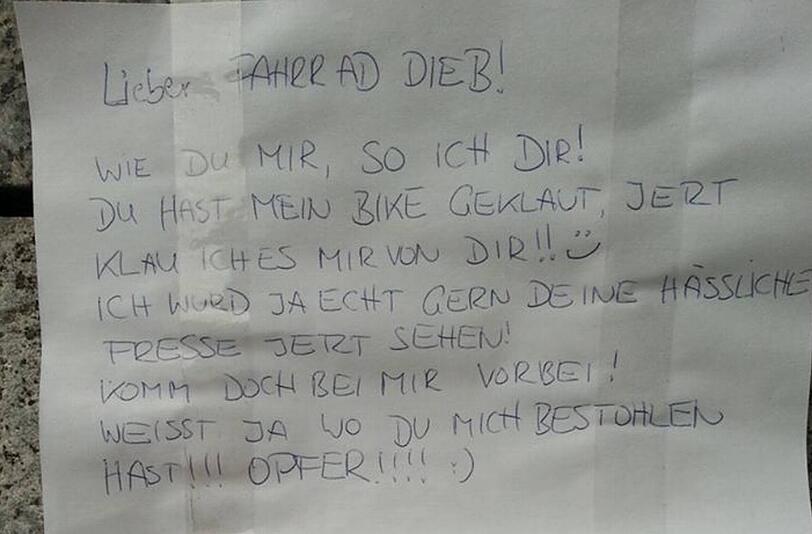 Lieber FAHRRAD DIEB!
WIE DU MIR, SO ICH DIR!
DU HAST MEIN BIKE GEKLAUT, JERT
KLAU ICH ES MIR VON DIR!! Ü
ICH WURD JA ECHT GERN DEINE HÄSSLICHE
FRESSE JERT SEHEN!
KOMM DOCH BEI MIR VORBEI!
WEISST JA WO DU MICH BESTOHLEN
HAST!!! OPFER!!!! :)